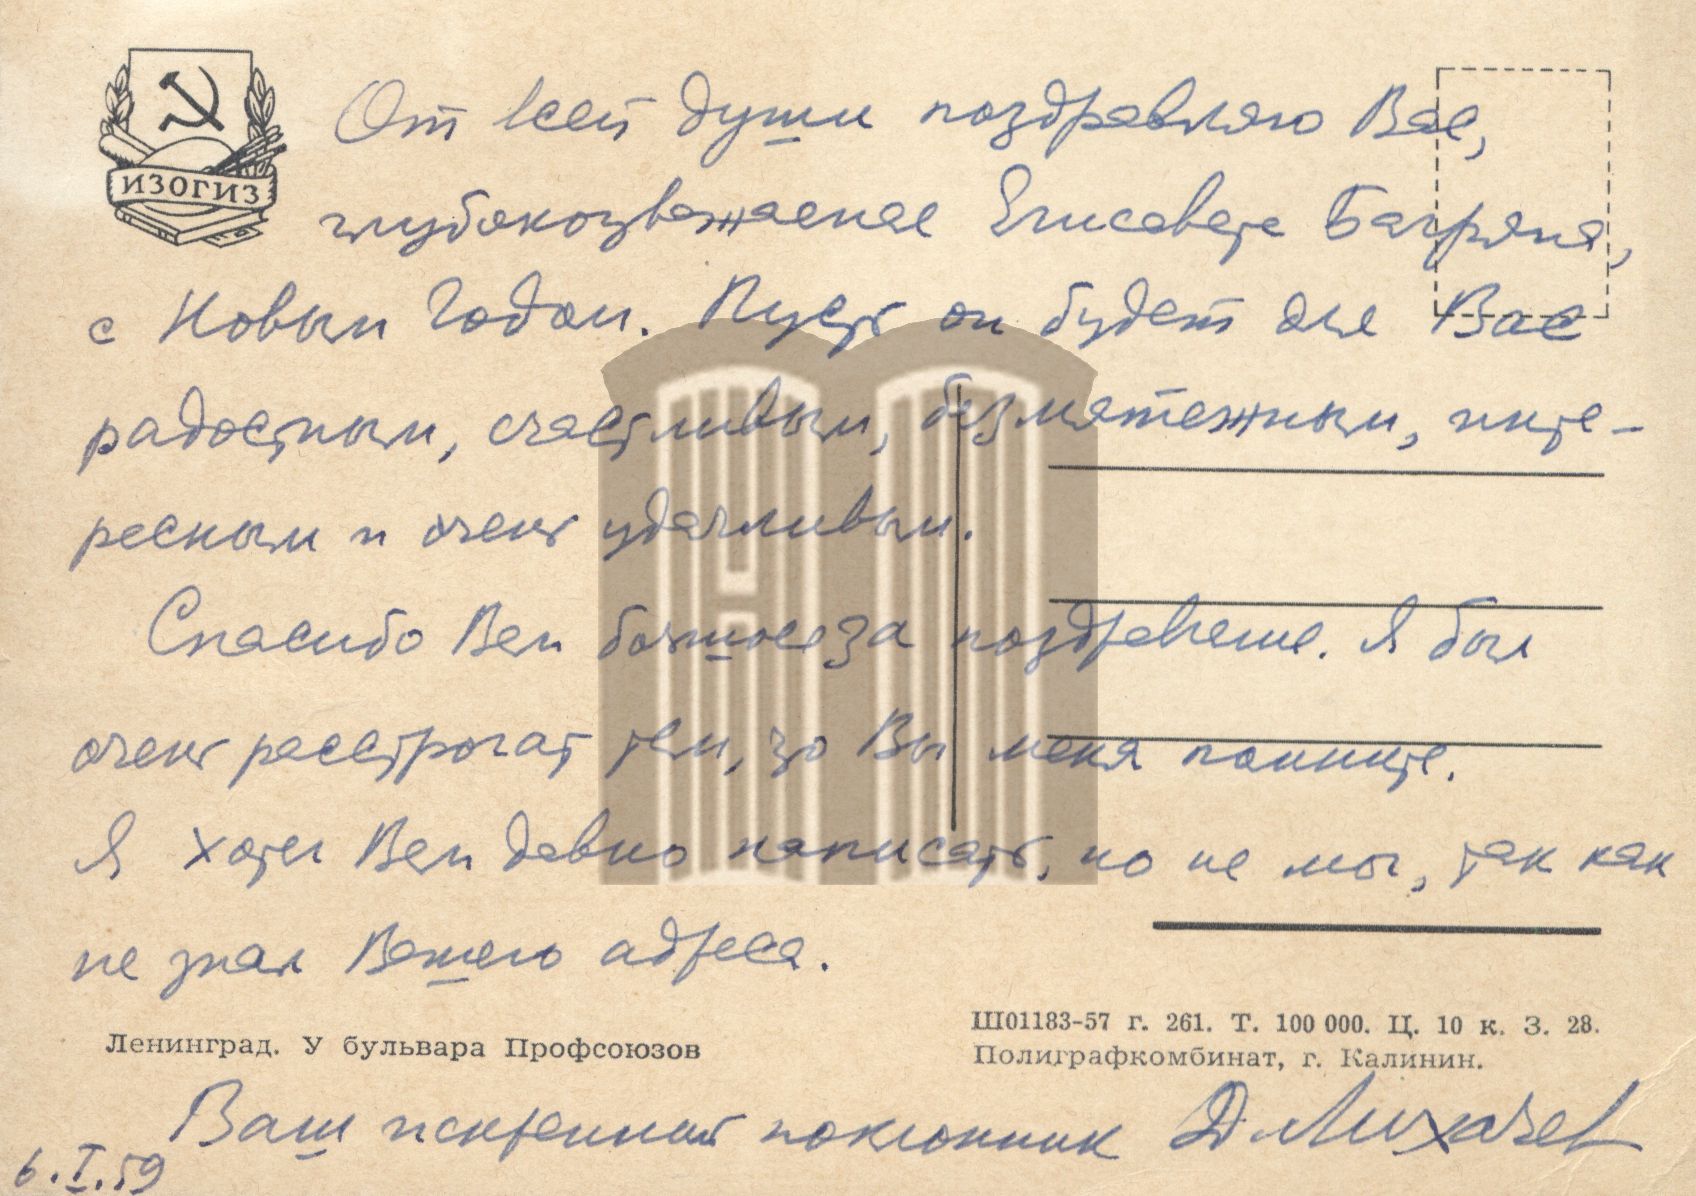 ИЗОГИЗ
От всей души поздравляю Вас,
глубокоуважаемая Елисавета Багряна,
с Новым Годом. Пусть он будет для Вас
радостным, счастливым, безмятежным, инте-
ресным и очень удачливым.
Спасибо Вам большое за поздравление. Я был
очень растроган тем, что Вы меня помните.
Я хотел Вам давно написать, но не мог, так как
не знал Вашего адреса.
Ленинград. У бульвара Профсоюзов
Ш01183-57 г. 261. Т. 100 000. Ц. 10 к. З. 28.
Полиграфкомбинат, г. Калинин.
Ваш искренний поклонник Д. Лихачев
6.I.59